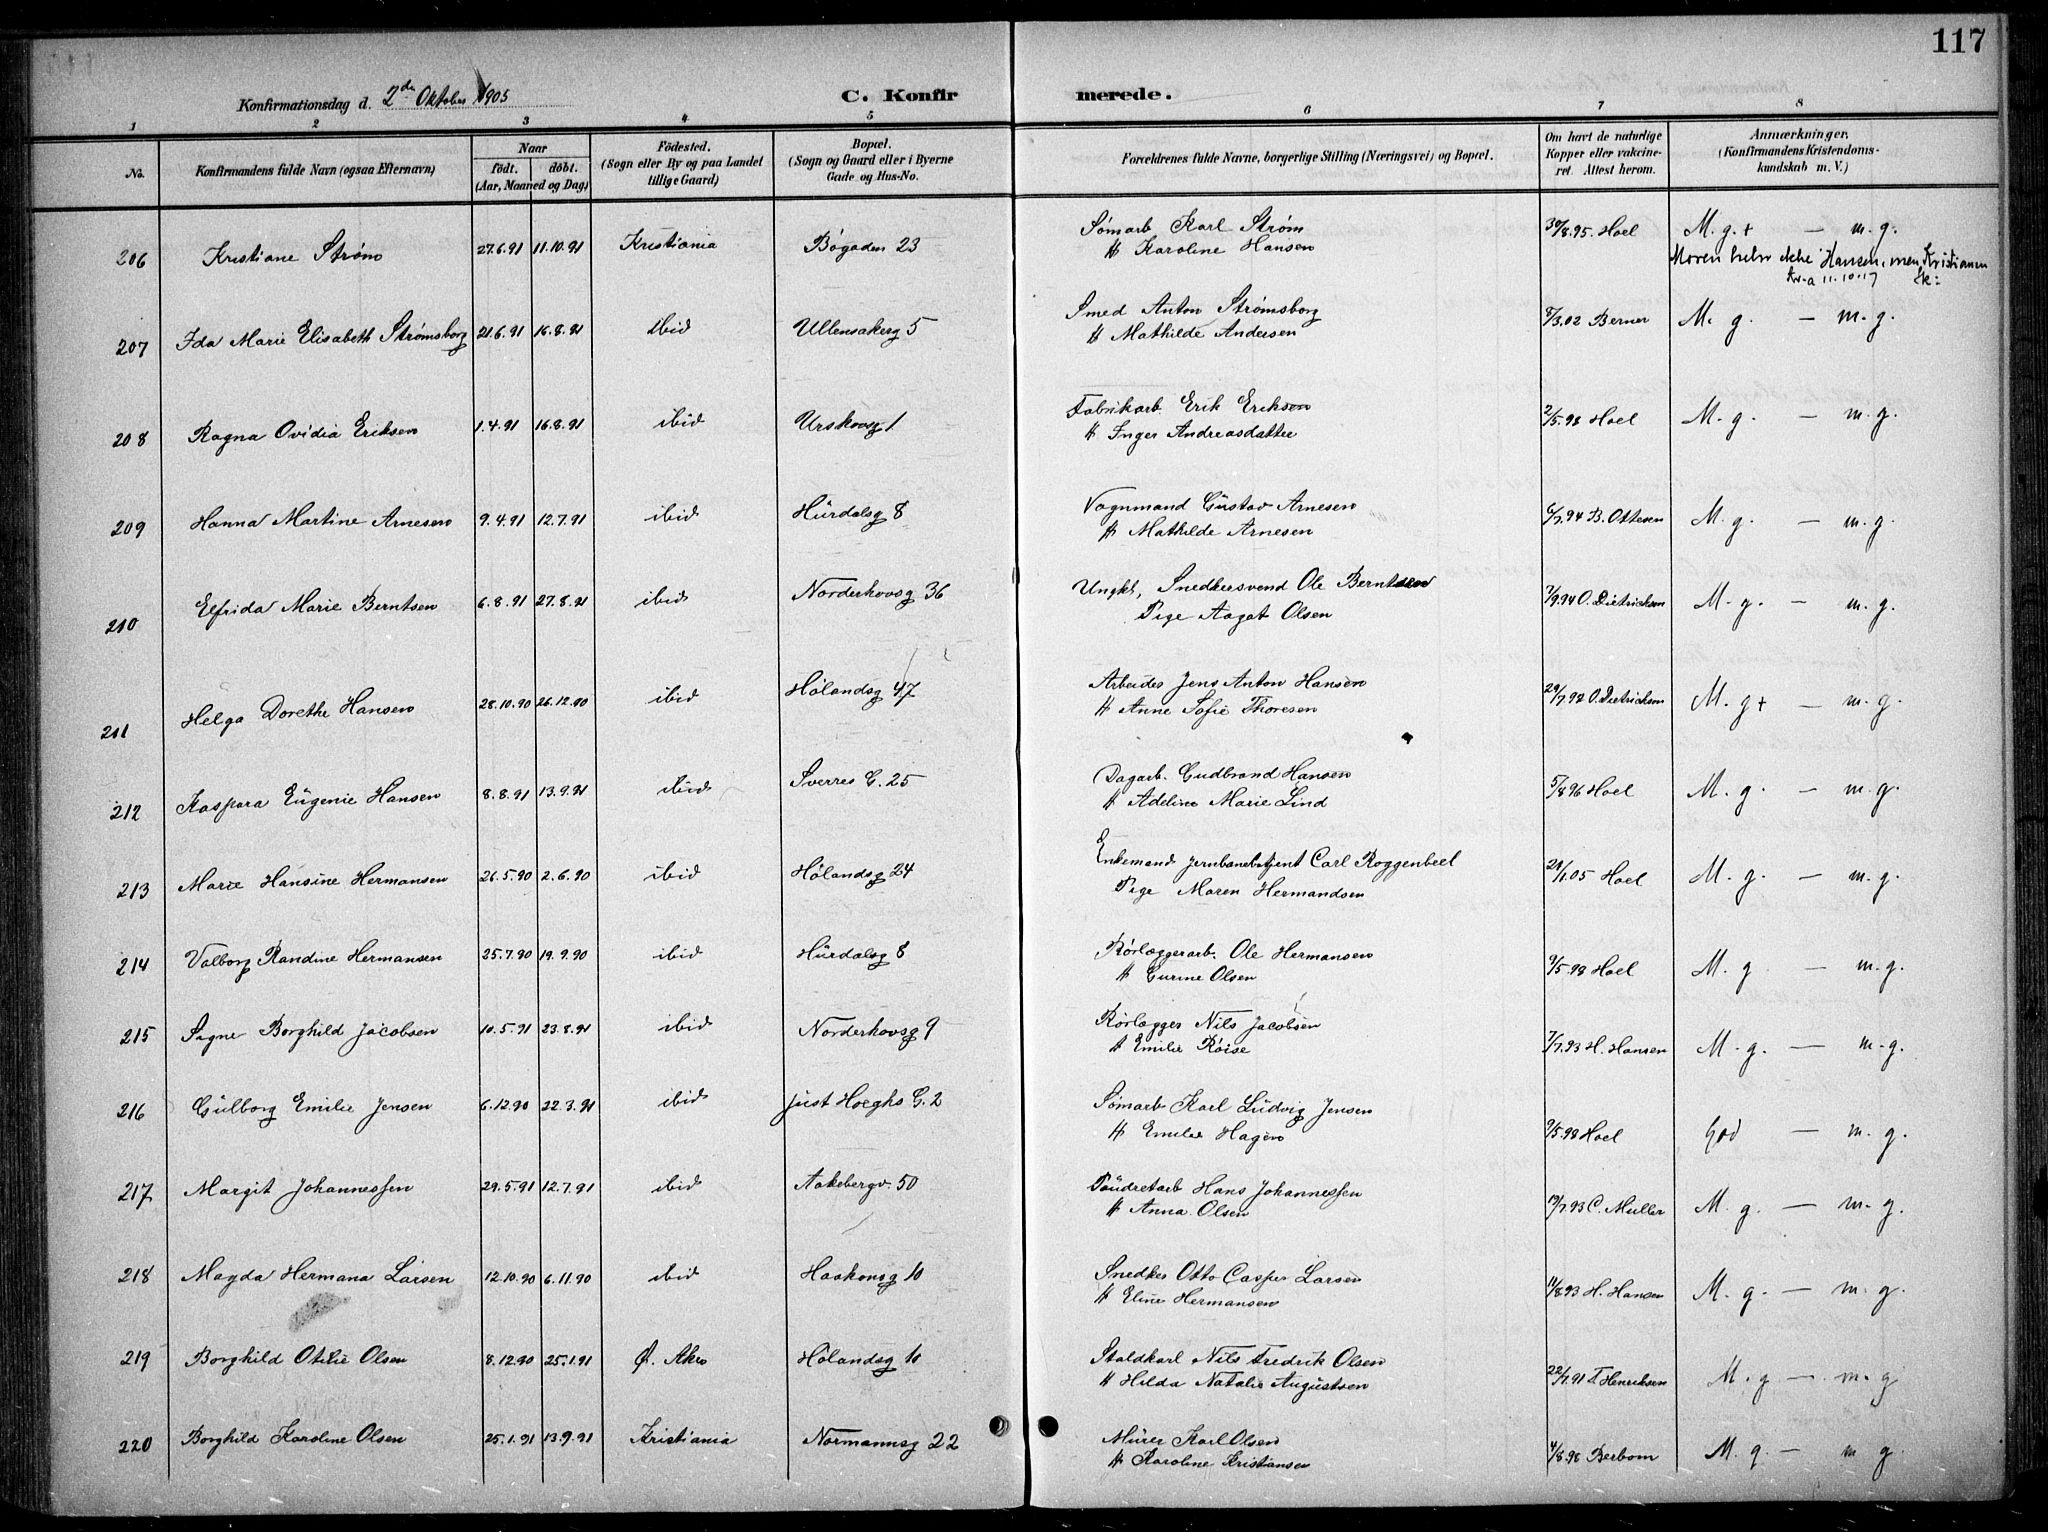 117
Konfirmationsdag d. 2den Oktober 1905
C. Konfirmerede.
1 2 3 4 5 6 7 8
No.
Konfirmandens fulde Navn (ogsaa Efternavn)
Naar
født. døbt.
(Aar, Maaned og Dag)
Fødested.
(Sogn eller By og paa Landet
tillige Gaard)
Bopæl.
(Sogn og Gaard eller i Byerne
Gade og Hus-No.
Forældrenes fulde Navne, borgerlige Stilling (Næringsvei) og Bopæl.
Om havt de naturlige
Kopper eller vakcine-
ret. Attest herom.
Anmærkninger.
(Konfirmandens Kristendoms-
kundskab m. V.)
206 Kristiane Strøm 27.6.91 11.10.91 Kristiania Bøgaden 23 Sømarb Karl Strøm 30/8.95. Hoel M. g. + — m. g.
H Karoline Hansen
Moren heder ikke Hansen, men Kristiansen
Kr.a 11.10.17
207 Ida Marie Elisabeth Strømsborg 21.6.91 16.8.91 ibid Ullensakerg 5 Smed Anton Strømsborg 5/3.02 Berner M. g. — m. g.
H Mathilde Andersen
208 Ragna Ovidia Eriksen 1.4.91 16.8.91 ibid Urskovsg 1 Fabrikarb. Erik Eriksen 2/5.98 Hoel M. g. — m. g.
H Inger Andreasdatter
209 Hanna Martine Arnesen 9.4.91 12.7.91 ibid Hürdalsg 8 Vognmand Güstav Arnesen 6/7.94 B. Ottesen M. g. — m. g.
H Mathilde Arnesen
210 Elfrida Marie Berntsen 6.8.91 27.8.91 ibid Norderhovsg 36 Ungkl, Snedkersvend Ole Berntsen 7/9.94 O. Dietrichsen M. g. — m. g.
Pige Aagot Olsen
211 Helga Dorethe Hansen 28.10.90 26.12.90 ibid Hølandsg 47 Arbeider Jens Anton Hansen 29/7.92 O. Dietrichsen M. g + — m. g.
H Anne Sofie Thoresen
212 Kaspara Eügenie Hansen 8.8.91 13.9.91 ibid Sverres G. 25 Dagarb. Gudbrand Hansen 5/8.96 Hoel M. g. — m. g.
H Adeline Marie Lind
213 Marie Hansine Hermansen 26.5.90 2.6.90 ibid Hølandsg 24 Enkemand Jernbanebetjent Carl Roggenbeel 21/1.05 Hoel M. g. — m. g.
Pige Maren Hermandsen
214 Valborg Randine Hermansen 25.7.90 19.9.90 ibid Hürdalsg 8 Rørlæggerarb. Ole Hermansen 9/5.98 Hoel M. g. — m. g.
H Gurine Olsen
215 Signe Borghild Jacobsen 10.5.91 23.8.91 ibid Norderhovsg 9 Rørlægger Nils Jacobsen 7/7.93 H. Hansen M. g. — m. g.
H Emilie Røise
216 Gülborg Emilie Jensen 6.12.90 22.3.91 ibid Just Hoeghs G. 2 Sømarb Karl Lüdvig Jensen 9/5.98 Hoel God — m. g.
H Emilie Hagen
217 Margit Johannessen 29.5.91 12.7.91 ibid Aakebergv. 50 Poüdretarb Hans Johannessen 19/7.93 C. Muller M. g. — m. g.
H Anna Olsen
218 Magda Hermana Larsen 12.10.90 6.11.90 ibid Haakonsg 10 Snedker Otto Casper Larsen 11/8.93 H. Hansen M. g. — m. g.
H Eline Hermansen
219 Borghild Otilie Olsen 8.12.90 25.1.91 Ø. Aker Hølandsg 10 Staldkarl Nils Fredrik Olsen 22/7.91 T. Henriksen M. g — m. g
H Hilda Natalie Augustsen
220 Borghild Karoline Olsen 25.1.91 13.9.91 Kristiania Normannsg 22 Mürer Karl Olsen 4/8.98 Berbom M. g. — m g
H Karoline Kristiansen